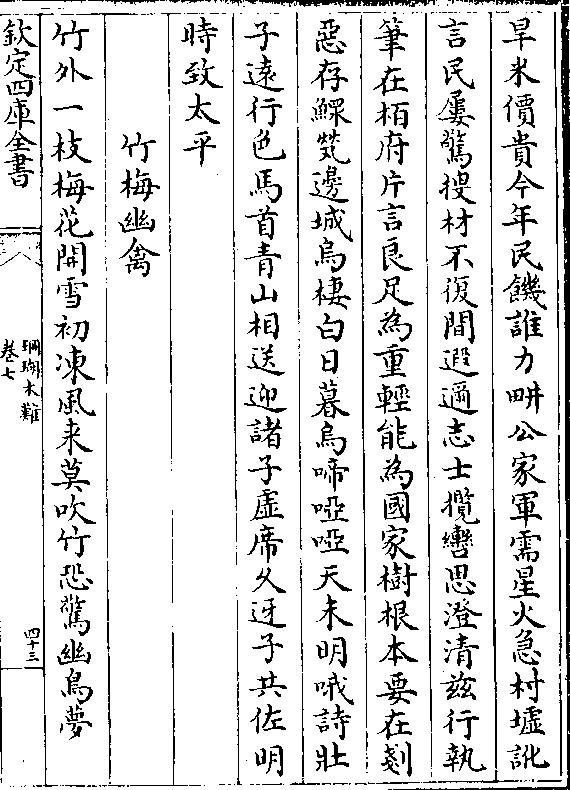 旱米價貴今年民饑誰力畊公家軍需星火急村墟訛
言民屢驚搜材不復間遐邇志士攬轡思澄清兹行執
筆在栢府片言良足為重輕能為國家樹根本要在剗
惡存鰥煢邊城烏棲白日暮烏啼啞啞天未明哦詩壯
子遠行色馬首青山相送迎諸子虛席久迓子其佐明
時致太平
竹梅幽禽
竹外一枝梅花開雪初凍風来莫吹竹恐驚幽鳥夢
欽定四庫全書
珊瑚木難
卷七
四十三